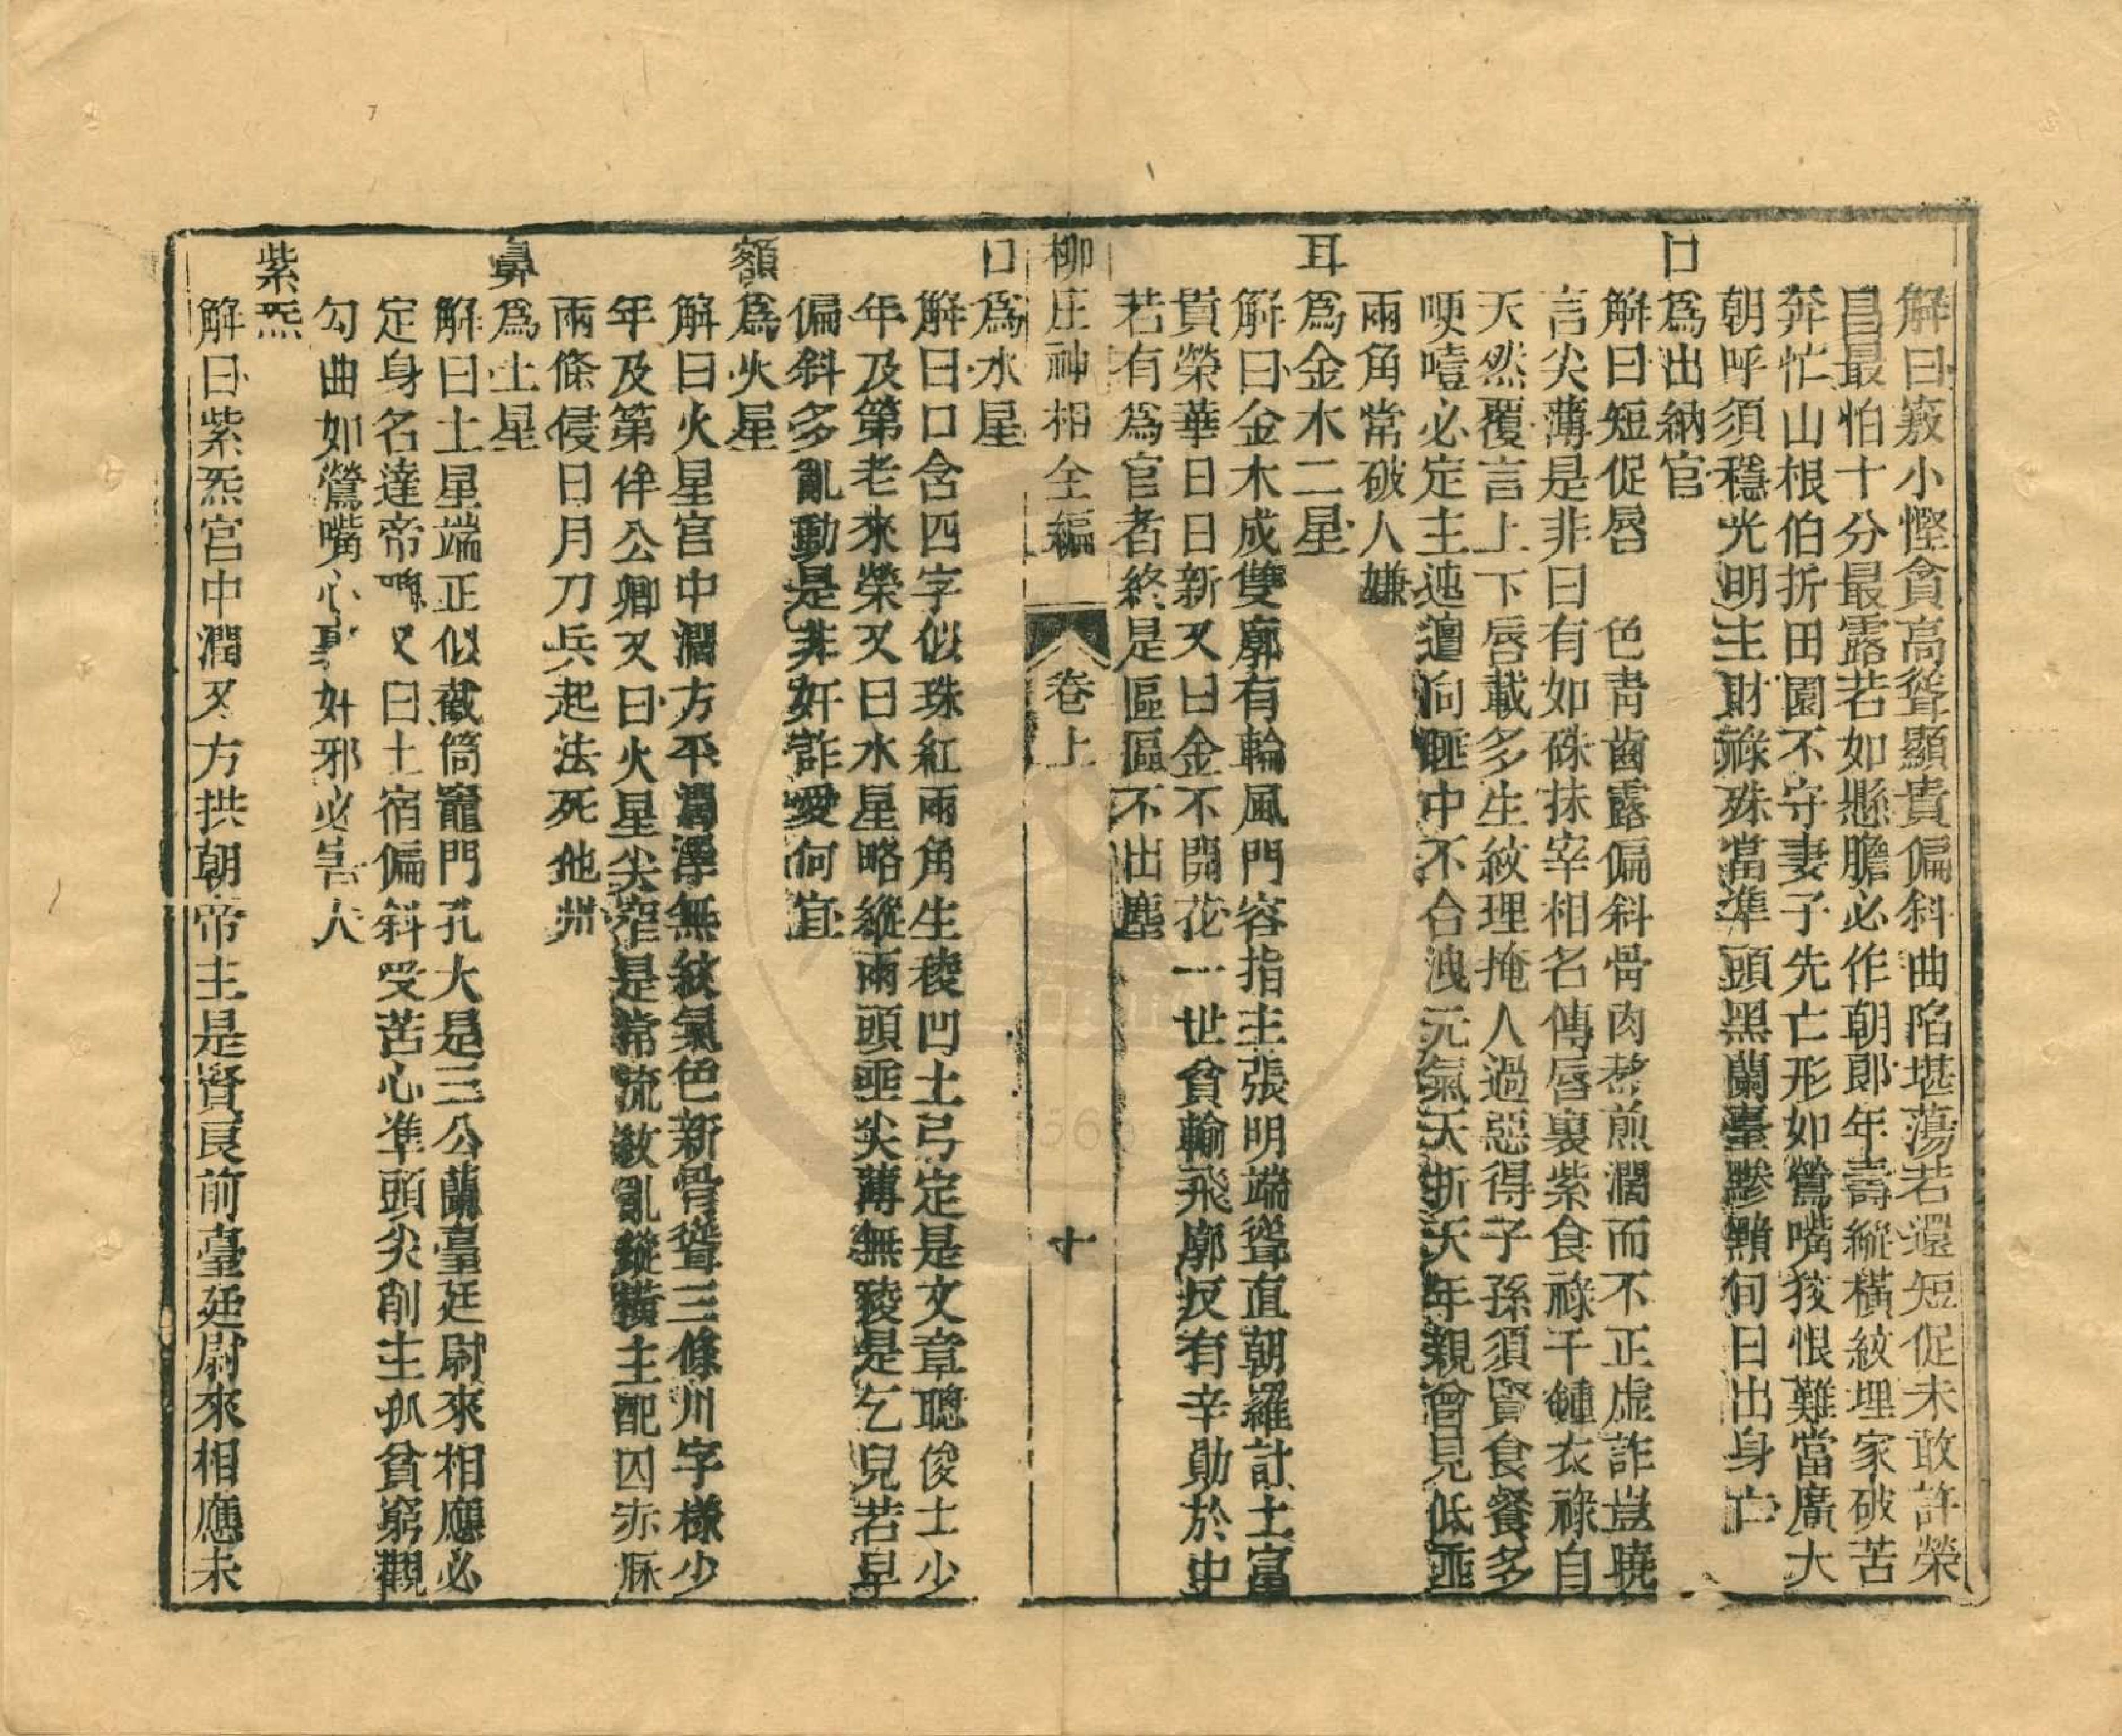 解曰竅小慳貪高聳顯貴偏斜曲陷堪蕩若還短促未敢許榮
昌最怕十分最露若如懸膽必作朝郎年壽縱橫紋埋家破苦
奔忙山根伯折田園不守妻子先亡形如鶯嘴狡恨難當廣大
朝呼須穩光明主財祿殊當準頭黑蘭臺黲黯旬日出身亡
口爲出納官
解曰短促唇　色青齒露偏斜骨肉熬煎濶而不正虛詐豈曉
言尖薄是非曰有如硃抹宰相名傳唇裏紫食祿千鍾衣祿自
天然覆言上下唇載多生紋理掩人過惡得子孫須賢食餐多
哽噎必定主迍邅向睡中不合洩元氣夭折天年親曾見低垂
兩角常破人嫌
耳爲金木二星
解曰金木成雙廓有輪風門容指主張明端聳直朝羅計土富
貴榮華日日新又曰金不開花一世貧輪飛廓反有辛勛於中
若有爲官者終是區區不出塵
柳庄神相全編　卷上　十
口爲水星
解曰口含四字似珠紅兩角生稜凹土弓定是文章聰俊士少
年及第老來榮又曰水星略縱兩頭垂尖薄無稜是乞兒若是
偏斜多亂動是非奸詐愛何宜
額爲火星
解曰火星宮中濶方平潤澤無紋氣色新骨聳三條川字樣少
年及第伴公卿又曰火星尖窄是常流紋亂縱橫主配囚赤脉
兩條侵日月刀兵起法死他州
鼻爲土星
解曰土星端正似截筒竈門孔大是三公蘭臺廷尉來相應必
定身名達帝又曰土宿偏斜受苦心準頭尖削主孤貧窮觀
勾曲如鶯嘴心裏奸邪必害人
紫炁
解曰紫炁宮中濶又方拱朝帝主是賢良前臺廷尉來相應未